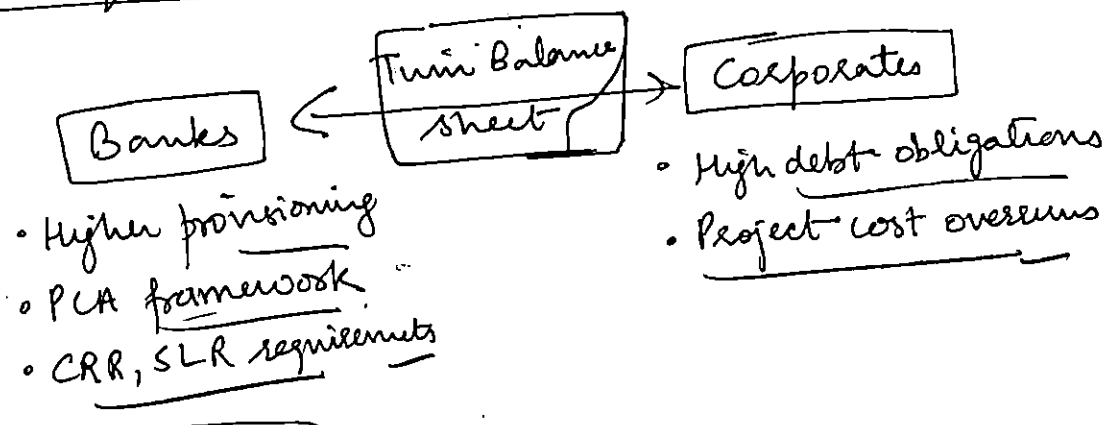 Twin Balance
sheet
Banks
• Higher provisioning
• PCA framework
• CRR, SLR requirements
Corporates
• High debt obligations
• Project cost overruns